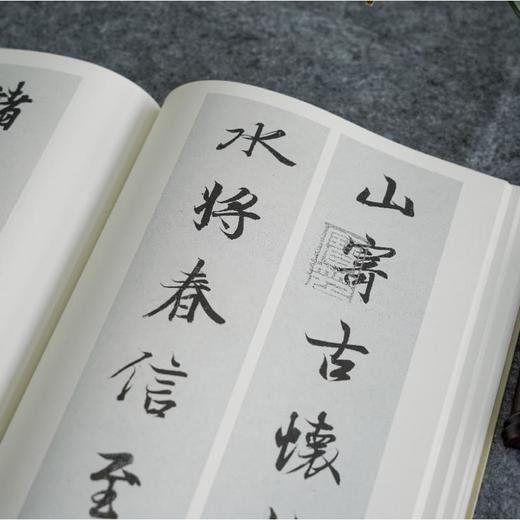 山寄古懷
水将春信至